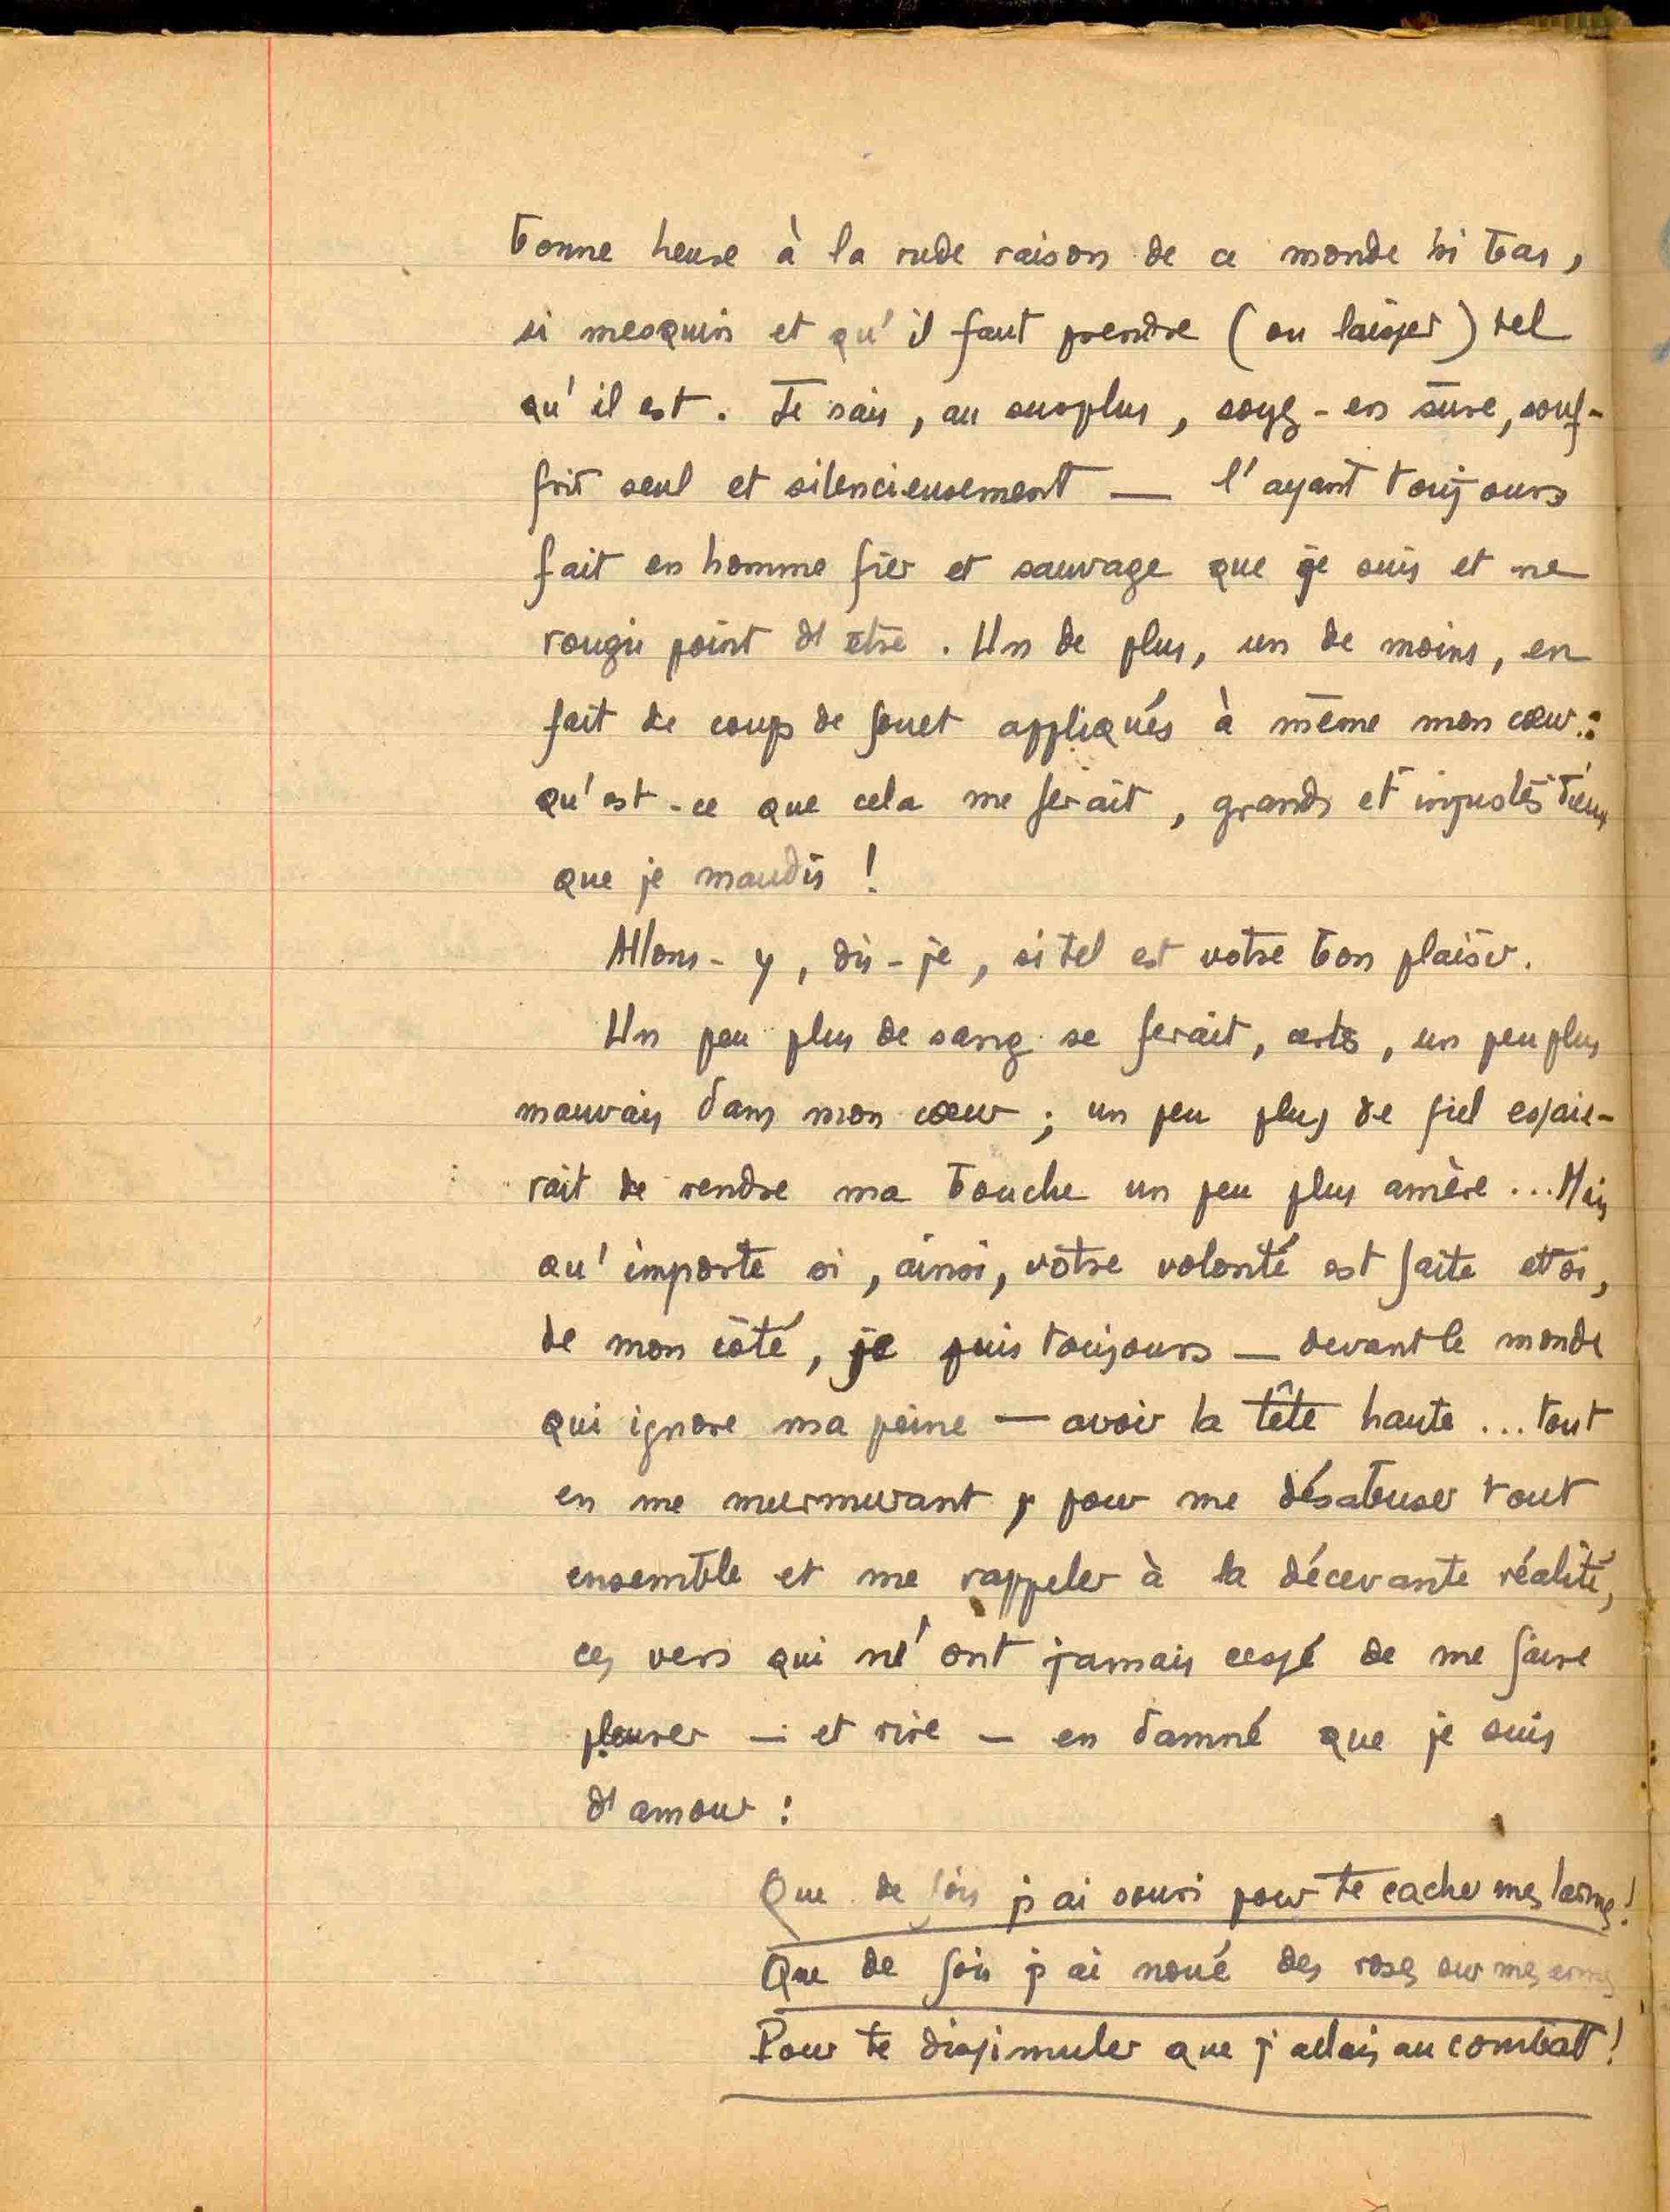 bonne heure à la rude raison de ce monde si bas,
si mesquin et qu'il faut prendre (ou laisser) tel
qu'il est. Je sais, au surplus, soyez-en sûre, souf-
frir seul et silencieusement — l'ayant toujours
fait en homme fier et sauvage que je suis et ne
rougis point d'être. Un de plus, un de moins, en
fait de coups de fouet appliqués à même mon cœur :
qu'est-ce que cela me ferait, grands et injustes Dieux
que je maudis !
Allons-y, dis-je, si tel est votre bon plaisir.
Un peu plus de sang se ferait, certes, un peu plus
mauvais dans mon cœur ; un peu plus de fiel essaie-
rait de rendre ma bouche un peu plus amère... Mais
qu'importe si, ainsi, votre volonté est faite et si,
de mon côté, je puis toujours — devant le monde
qui ignore ma peine — avoir la tête haute... tout
en me murmurant, pour me désabuser tout
ensemble et me rappeler à la décevante réalité,
ces vers qui n'ont jamais cessé de me faire
pleurer — et rire — en damné que je suis
d'amour :
Que de fois j'ai souri pour te cacher mes larmes !
Que de fois j'ai noué des roses sur mes armes
Pour te dissimuler que j'allais au combat !